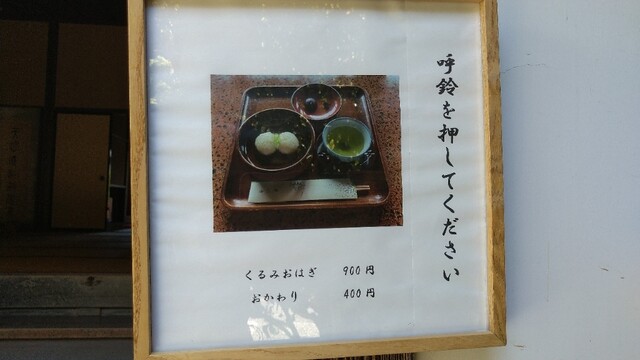 呼鈴を押してください
くるみおはぎ 900円
おかわり 400円